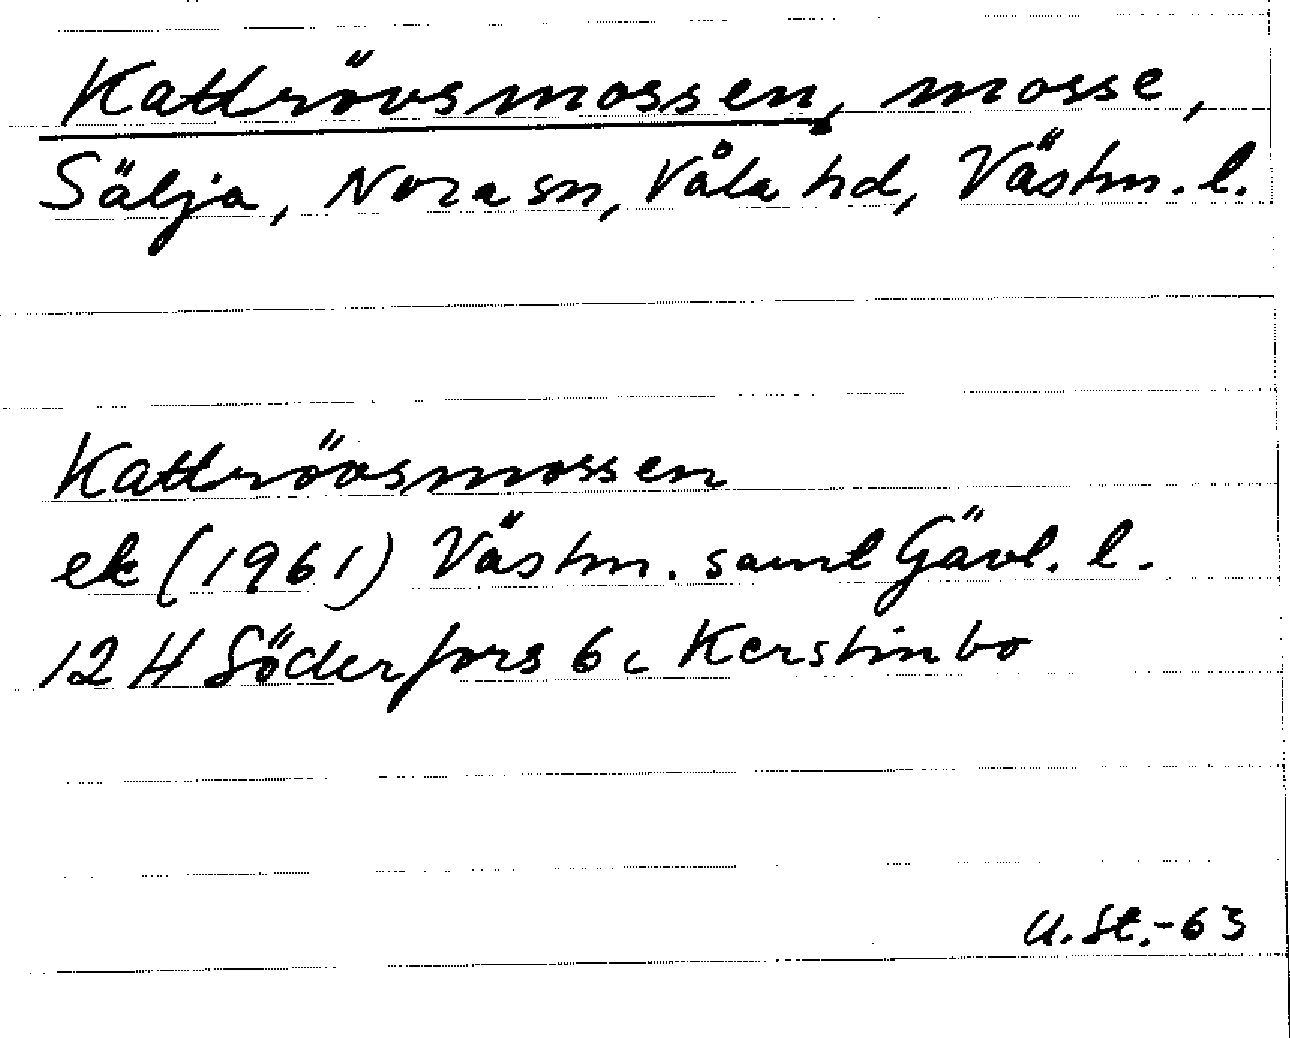 Kattrövsmossen, mosse,
Sälja, Nora sn, Våla hd, Västm. l.
Kattrövsmossen
ek (1961) Västm. samt Gävl. l.
12 H Söderfors 6 c Kerstinbo
U. St. -63